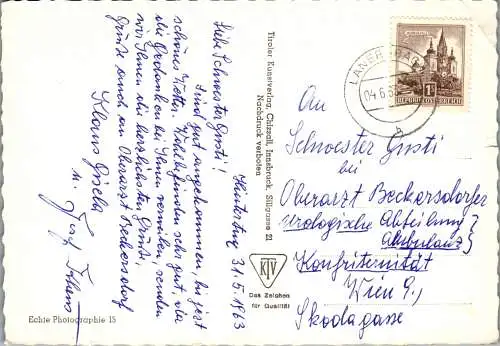 Hinterberg 31.5.1963
Liebe Schwester Gusti!
Sind gut angekommen, bis jetzt
schönes Wetter. Wohlbefinden sehr gut, da
die Gedanken bei Ihnen verweilen, senden
wir Ihnen die herzlichsten Grüße,
Grüße auch an Oberarzt Beckersdorf
Klaus Gisela
u.
Echte Photographie 15
Tiroler Kunstverlag, Chizzali, Innsbruck, Sillgasse 21
Nachdruck verboten
KTV
Das Zeichen
für Qualität
04.6.63
1S
REPUBLIK ÖSTERREICH
An
Schwester Gusti
bei
Oberarzt Beckersdorfer
urologische Abteilung
Ambulanz
Konfriternität
Wien 9.,
Skodagasse